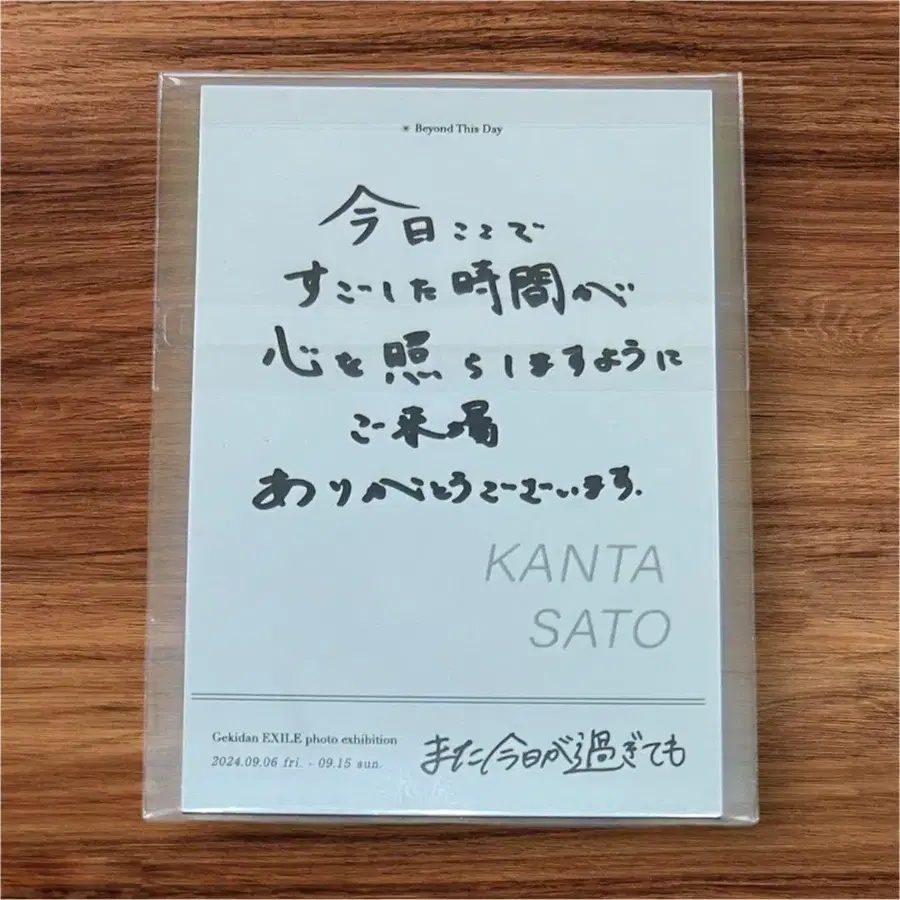 ✳ Beyond This Day
今日ここで
すごした時間が
心を照らしますように
ご来場
ありがとうございます.
KANTA
SATO
Gekidan EXILE photo exhibition
2024.09.06 fri. - 09.15 sun.
また今日が過ぎても